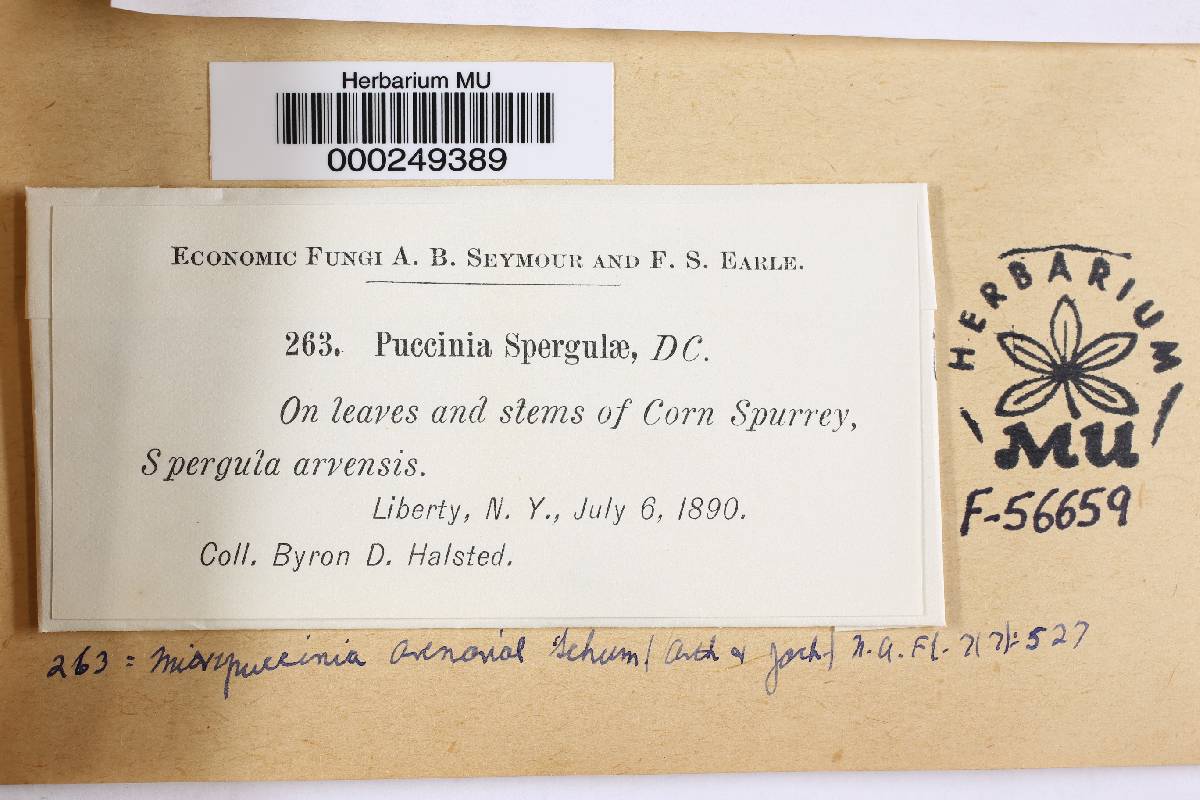 Herbarium MU
000249389
ECONOMIC FUNGI A. B. SEYMOUR AND F. S. EARLE.
263. Puccinia Spergulæ, DC.
On leaves and stems of Corn Spurrey,
Spergula arvensis.
Liberty, N. Y., July 6, 1890.
Coll. Byron D. Halsted.
HERBARIUM
MU
F-56659
263 = Micropuccinia Schum( Arth & Jack) N.A.Fl. 7(7):527